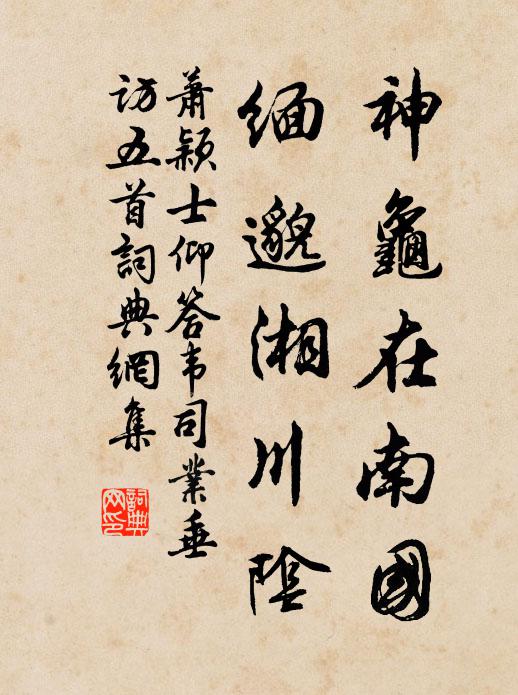 神龜在南國
緬邈湘川陰
蕭穎士仰答韦司業垂
访五首詞典網集
詞典
网印